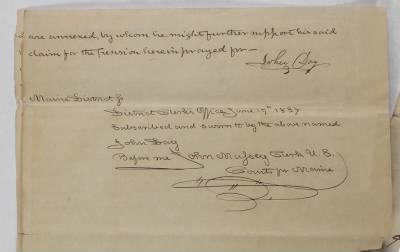 are annexed, by whom he might further support his said
claim for the Pension herein prayed for—
John Day
Maine District ss
District Clerk's Office June 19th 1837
Subscribed and sworn to by the above named
John Day
Before me John Mussey Clerk U. S.
Courts for Maine